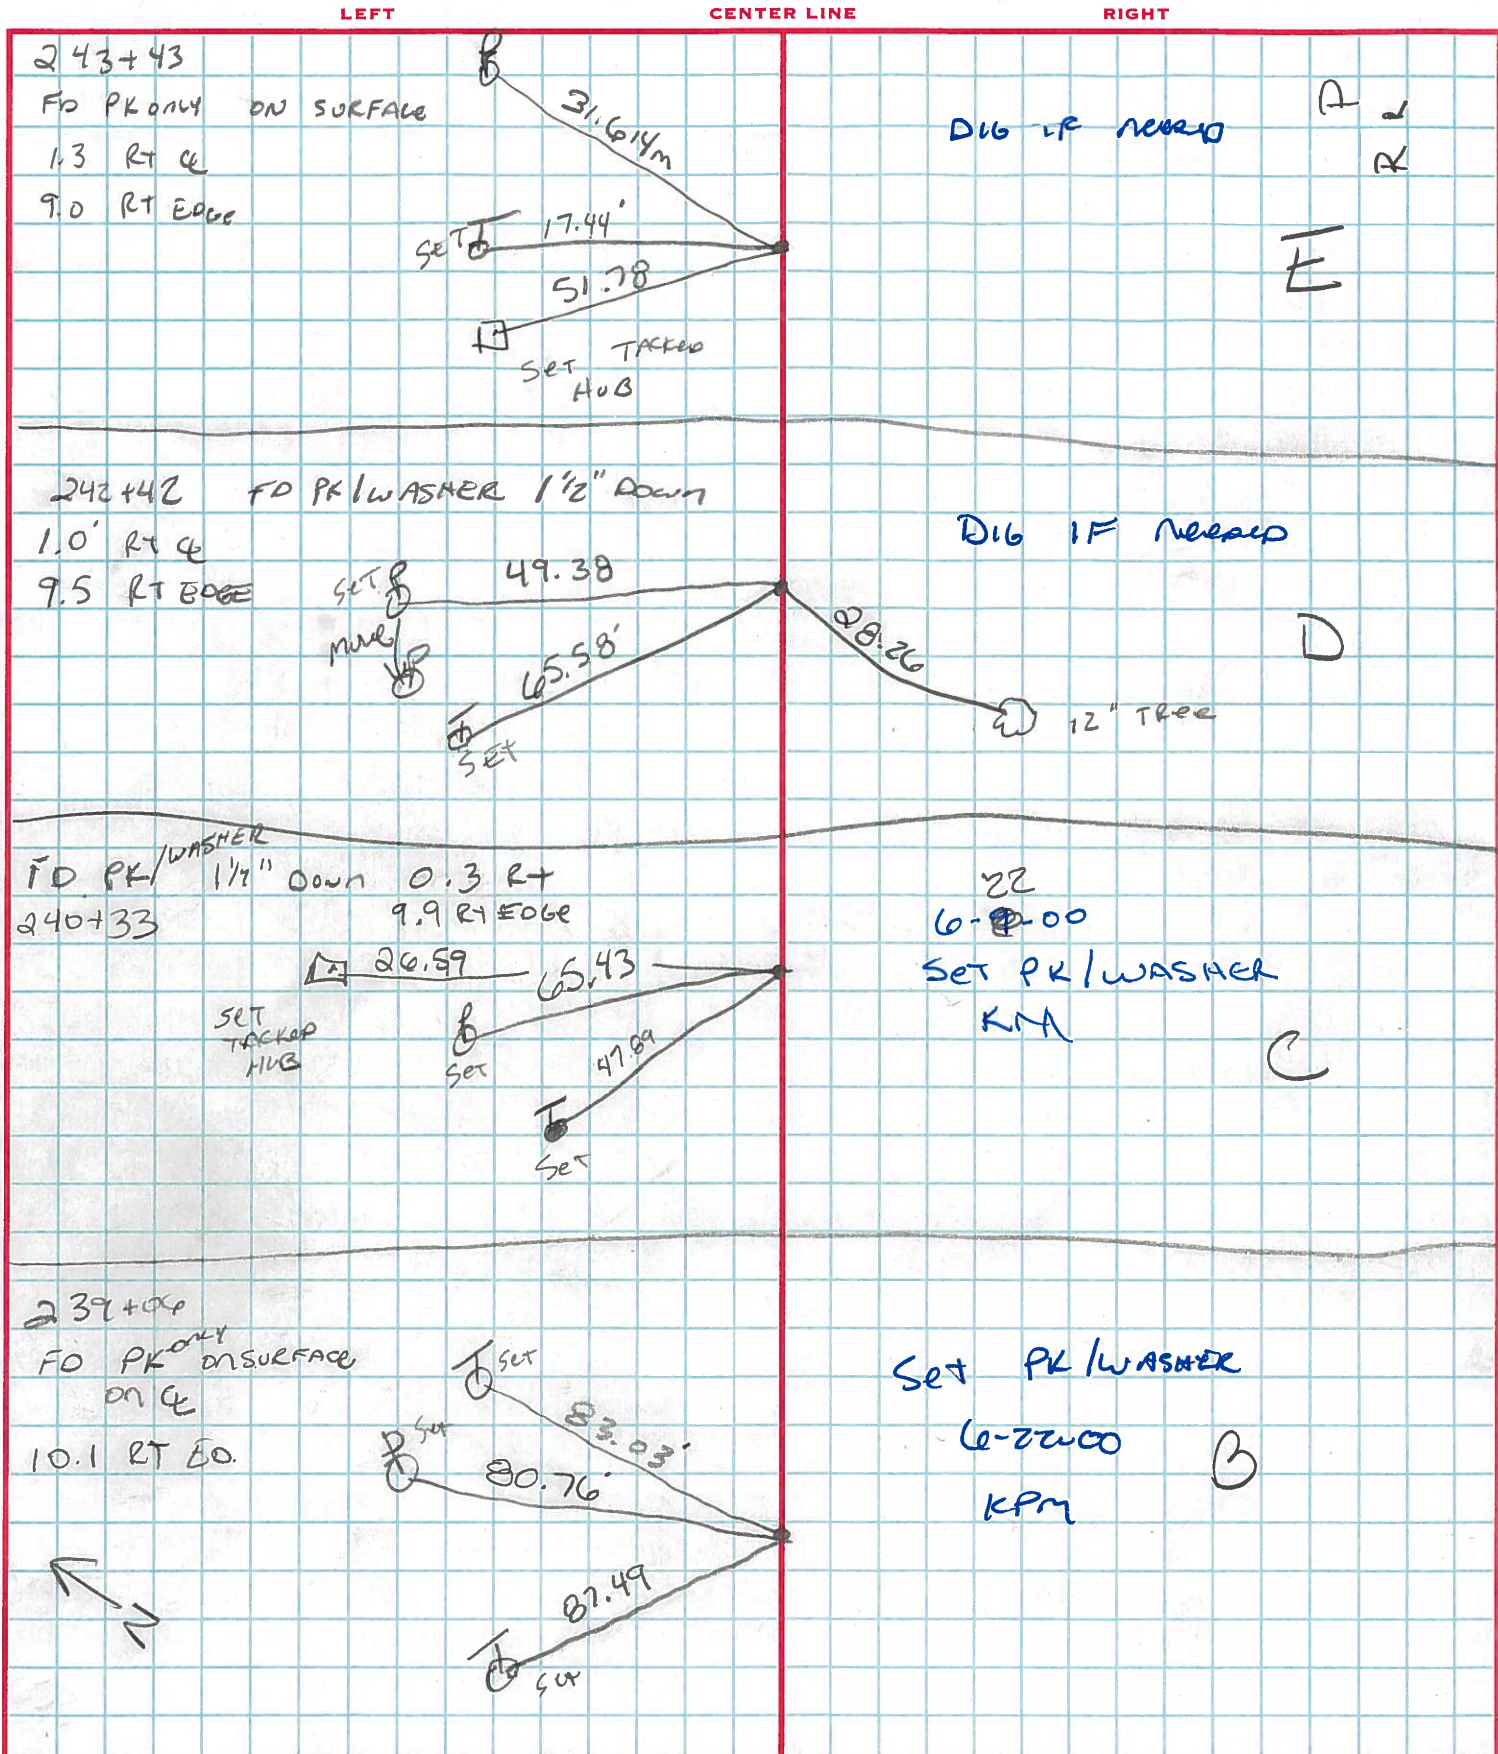 LEFT CENTER LINE RIGHT
243+43
FD PK ONLY ON SURFACE
1.3 RT CL
9.0 RT EDGE
31.614m
SET 17.44'
51.78
SET TACKED
HUB
DIG IF NEEDED
E
242+42 FD PK/WASHER 1 1/2" DOWN
1.0' RT CL
9.5 RT EDGE
SET 49.38
MOVE
65.58'
SET
28.26
12" TREE
DIG IF NEEDED
D
FD PK/WASHER 1 1/2" DOWN 0.3 RT
240+33 9.9 RT EDGE
26.59 65.43
SET
TACKED
HUB
SET
47.89
SET
22
6- -00
SET PK/WASHER
KM
C
239+06
FD PK ONLY ON SURFACE
ON CL
10.1 RT ED.
SET
83.03'
SET
80.76'
87.49
SET
N
SET PK/WASHER
6-22-00
KPM
B